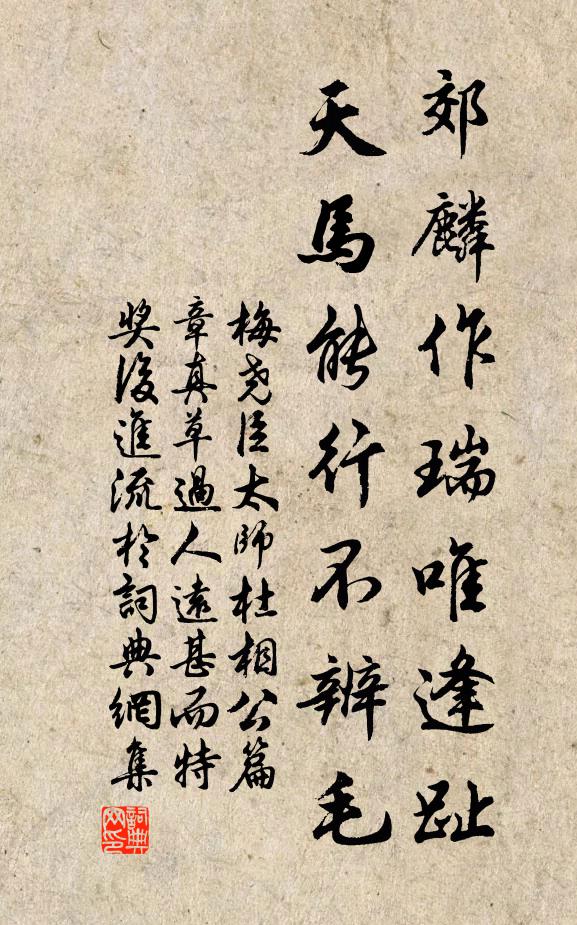 郊麟作瑞唯逢趾
天馬能行不辨毛
梅堯臣太師杜相公篇
章真草過人遠甚而特
獎後進流於詞典網集
詞典網印